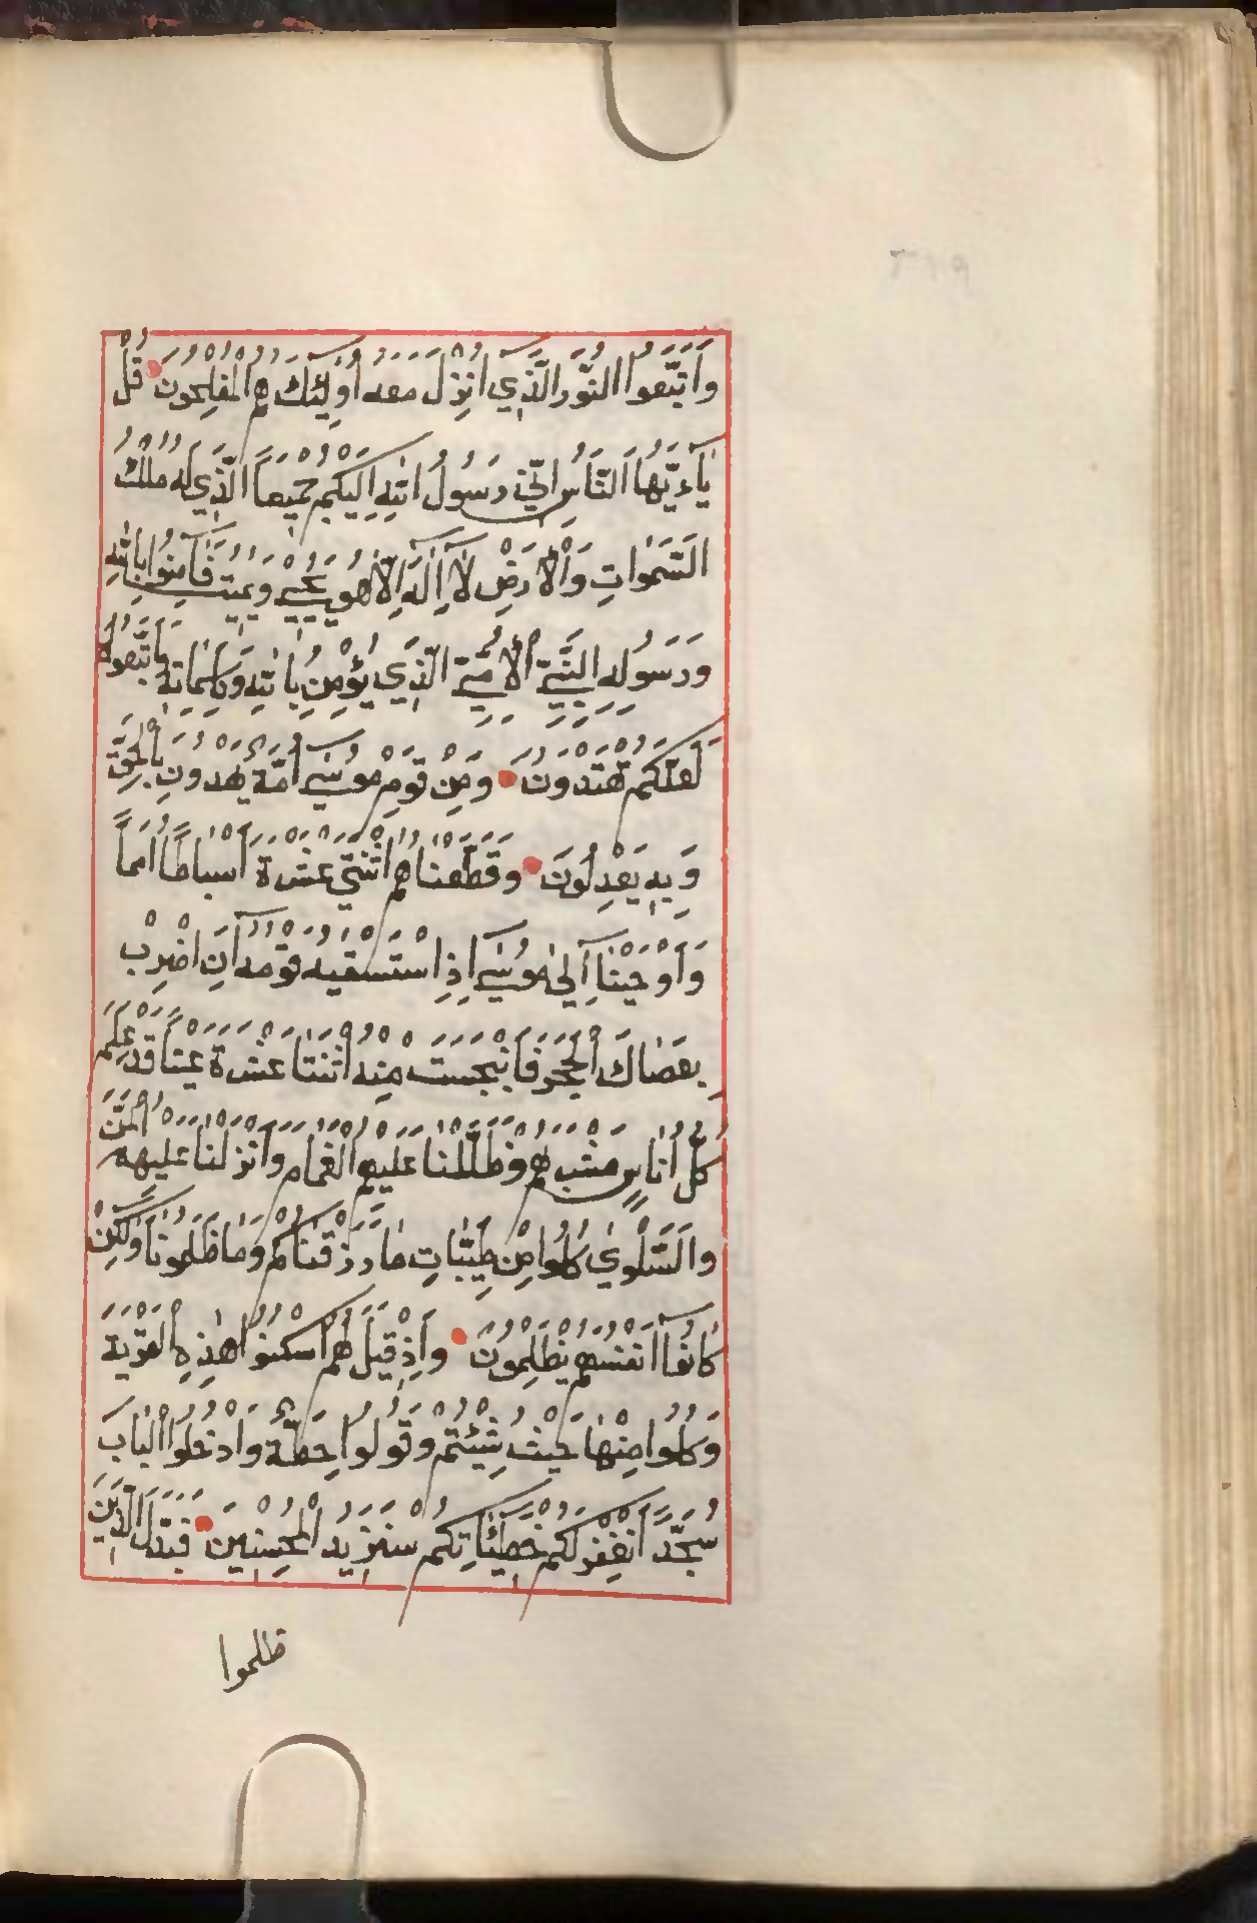 وَاَتَّبَعُوا النُّورَ الَّذِي اُنْزِلَ مَعَهُ اُولٰئِكَ هُمُ الْمُفْلِحُونَ قُلْ
يٰٓاَءَيُّهَا اَلنَّاسُ اِنِّي رَسُولُ اللّٰهِ اِلَيْكُمْ جَمِيعاً الَّذِي لَهُ مُلْكُ
السَّمٰوَاتِ وَالْاَرْضِ لَآ اِلٰهَ اِلَّا هُوَ يُحْيِي وَيُمِيتُ فَآمِنُوا بِاللّٰهِ
وَرَسُولِهِ النَّبِيِّ الْاُمِّيِّ الَّذِي يُؤْمِنُ بِاللّٰهِ وَكَلِمَاتِهِ وَاتَّبِعُوهُ
لَعَلَّكُمْ تَهْتَدُونَ وَمِنْ قَوْمِ مُوسَىٰ اُمَّةٌ يَهْدُونَ بِالْحَقِّ
وَبِهِ يَعْدِلُونَ وَقَطَّعْنَاهُمُ اثْنَتَيْ عَشْرَةَ اَسْبَاطاً اُمَماً
وَاَوْحَيْنَآ اِلَىٰ مُوسَىٰٓ اِذِ اسْتَسْقٰيهُ قَوْمُهُ اَنِ اضْرِبْ
بِعَصَاكَ الْحَجَرَ فَانْبَجَسَتْ مِنْهُ اثْنَتَا عَشْرَةَ عَيْناً قَدْ عَلِمَ
كُلُّ اُنَاسٍ مَشْرَبَهُمْ وَظَلَّلْنَا عَلَيْهِمُ الْغَمَامَ وَاَنْزَلْنَا عَلَيْهِمُ الْمَنَّ
وَالسَّلْوٰى كُلُوا مِنْ طَيِّبَاتِ مَا رَزَقْنَاكُمْ وَمَا ظَلَمُونَا وَلٰكِنْ
كَانُوٓا اَنْفُسَهُمْ يَظْلِمُونَ وَاِذْ قِيلَ لَهُمُ اسْكُنُوا هٰذِهِ الْقَرْيَةَ
وَكُلُوا مِنْهَا حَيْثُ شِئْتُمْ وَقُولُوا حِطَّةٌ وَادْخُلُوا الْبَابَ
سُجَّداً نَغْفِرْ لَكُمْ خَطِيٓئَاتِكُمْ سَنَزِيدُ الْمُحْسِنِينَ فَبَدَّلَ الَّذِينَ
ظلموا